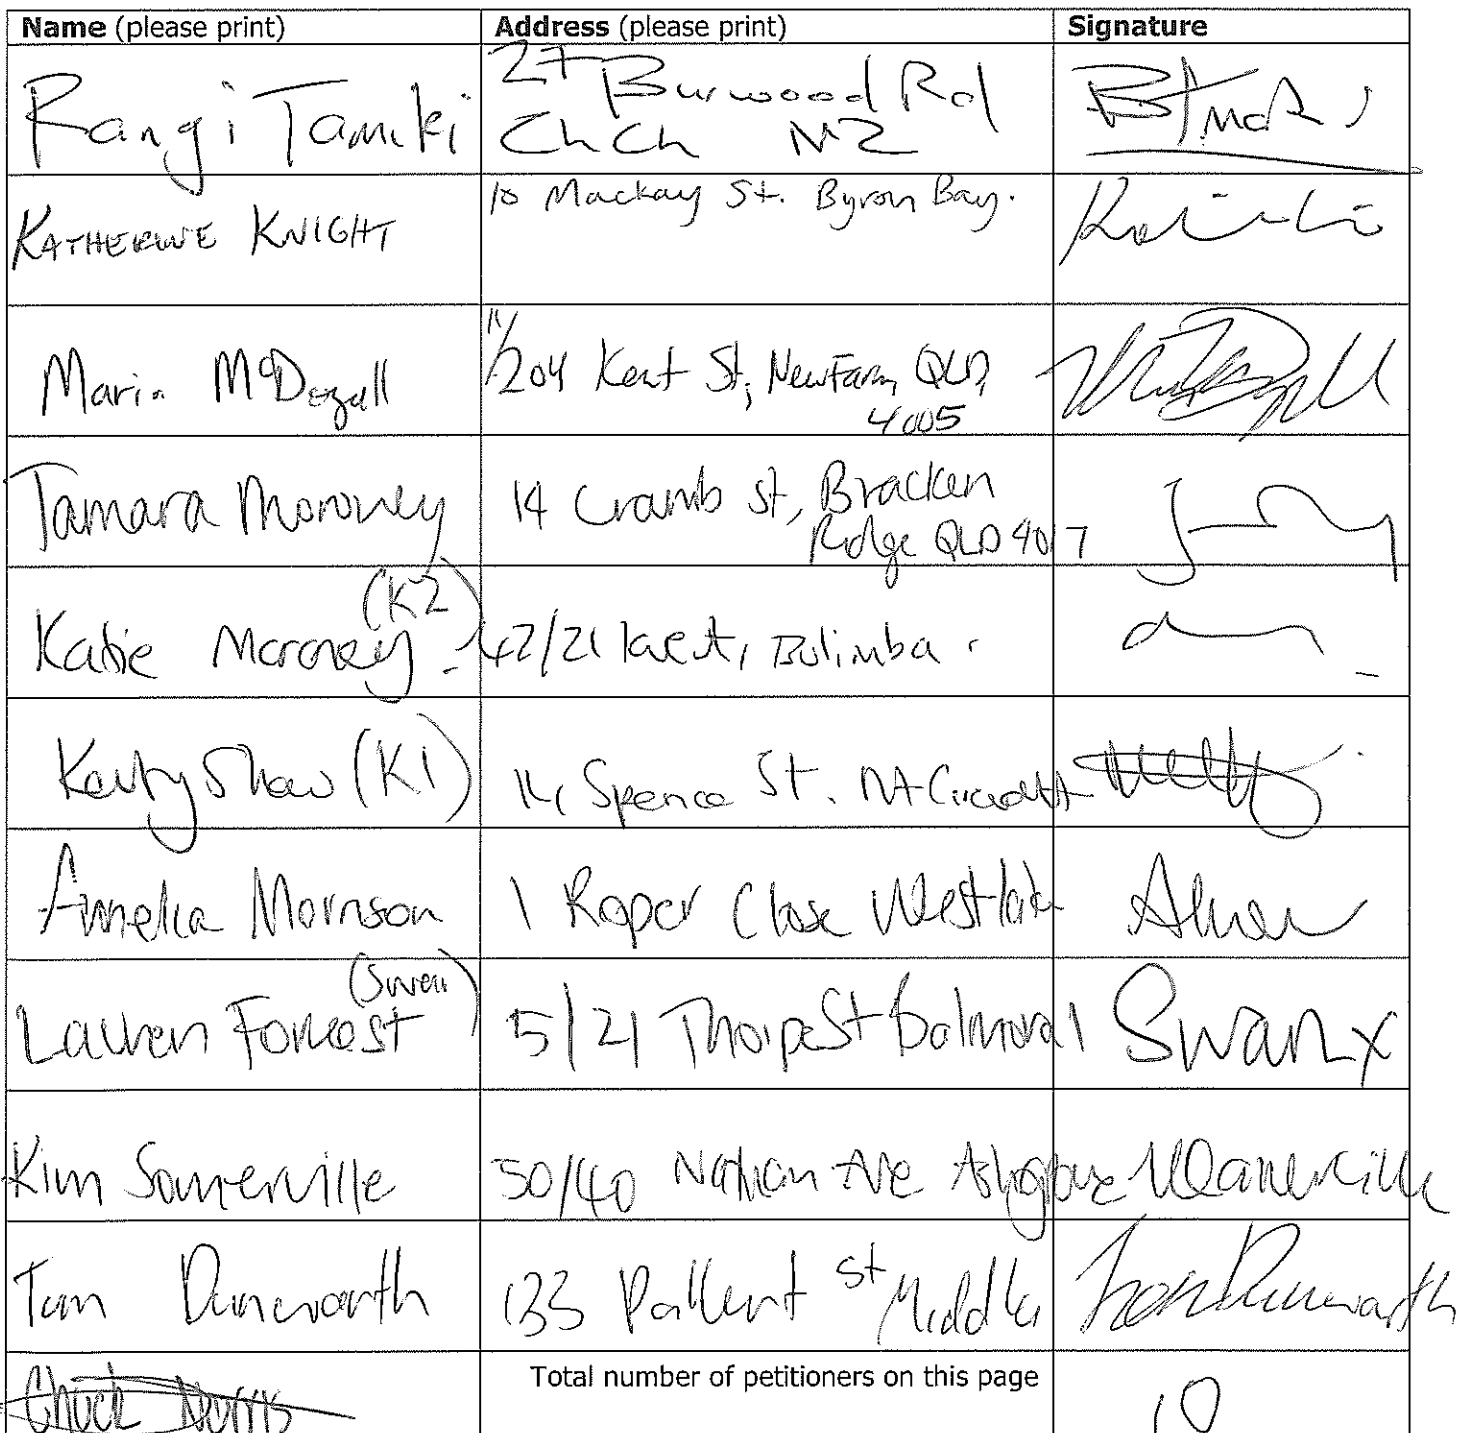 Name (please print) Address (please print) Signature
Rangi Tamiki 27 Burwood Rd
ChCh NZ
KATHERINE KNIGHT 10 Mackay St. Byron Bay.
Maria McDogall 11/204 Kent St, New Farm, QLD,
4005
Tamara Moroney 14 Cramb St, Bracken
Ridge QLD 4017
(K2)
Katie Moroney 42/21 Bulimba
Shaw (K1) Spence St. Mt
Amelia Morrison 1 Roper Close Westlake
(Swan)
Lauren Forrest 5/21 Thorpe St Balmoral Swan x
Kim Somerville 50/40 Nathan Ave Ashgrove
Tom Dunworth 133 St
Total number of petitioners on this page 10
Chuck Norris